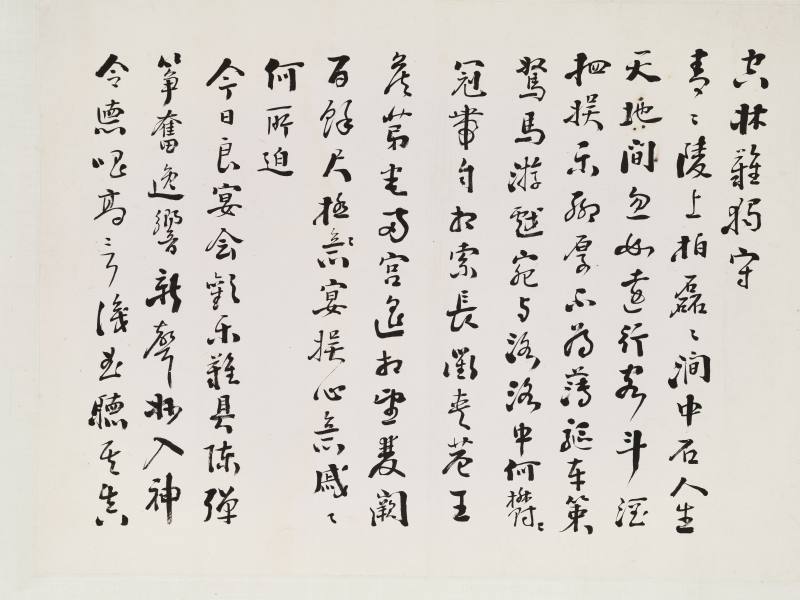 空牀難獨守
青々陵上柏磊々澗中石人生
天地間忽如遠行客斗酒
相娛樂聊厚不為薄驅車策
駑馬游戲宛与洛洛中何欝々
冠帶自相索長衢夾巷王
侯苐宅两宮遥相望雙闕
百餘尺極意宴娛心意戚々
何所迫
今日良宴會歡樂難具陳彈
箏奮逸響新聲妙入神
令德唱高言識曲聽其真